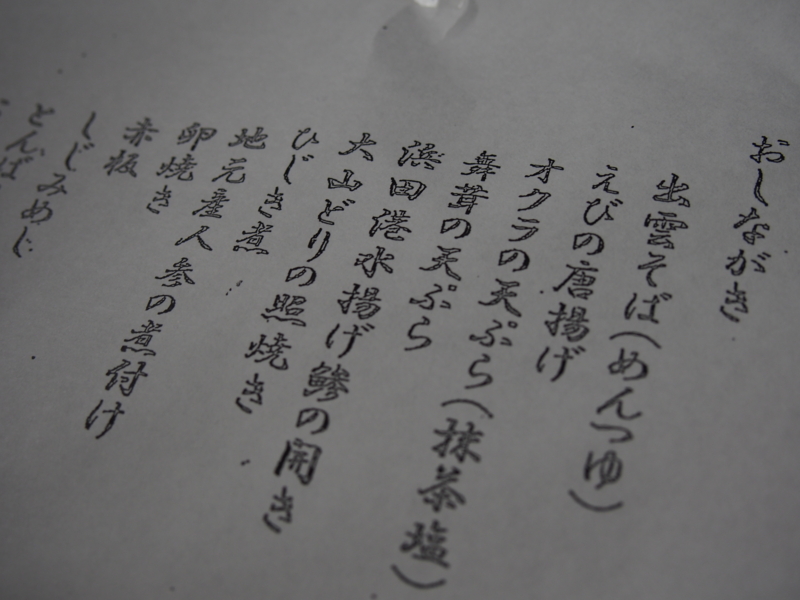 おしながき
出雲そば(めんつゆ)
えびの唐揚げ
オクラの天ぷら(抹茶塩)
舞茸の天ぷら
浜田港水揚げ鯵の開き
大山どりの照焼き
ひじき煮
地元産人参の煮付け
卵焼き
赤板
しじみめし
とんば